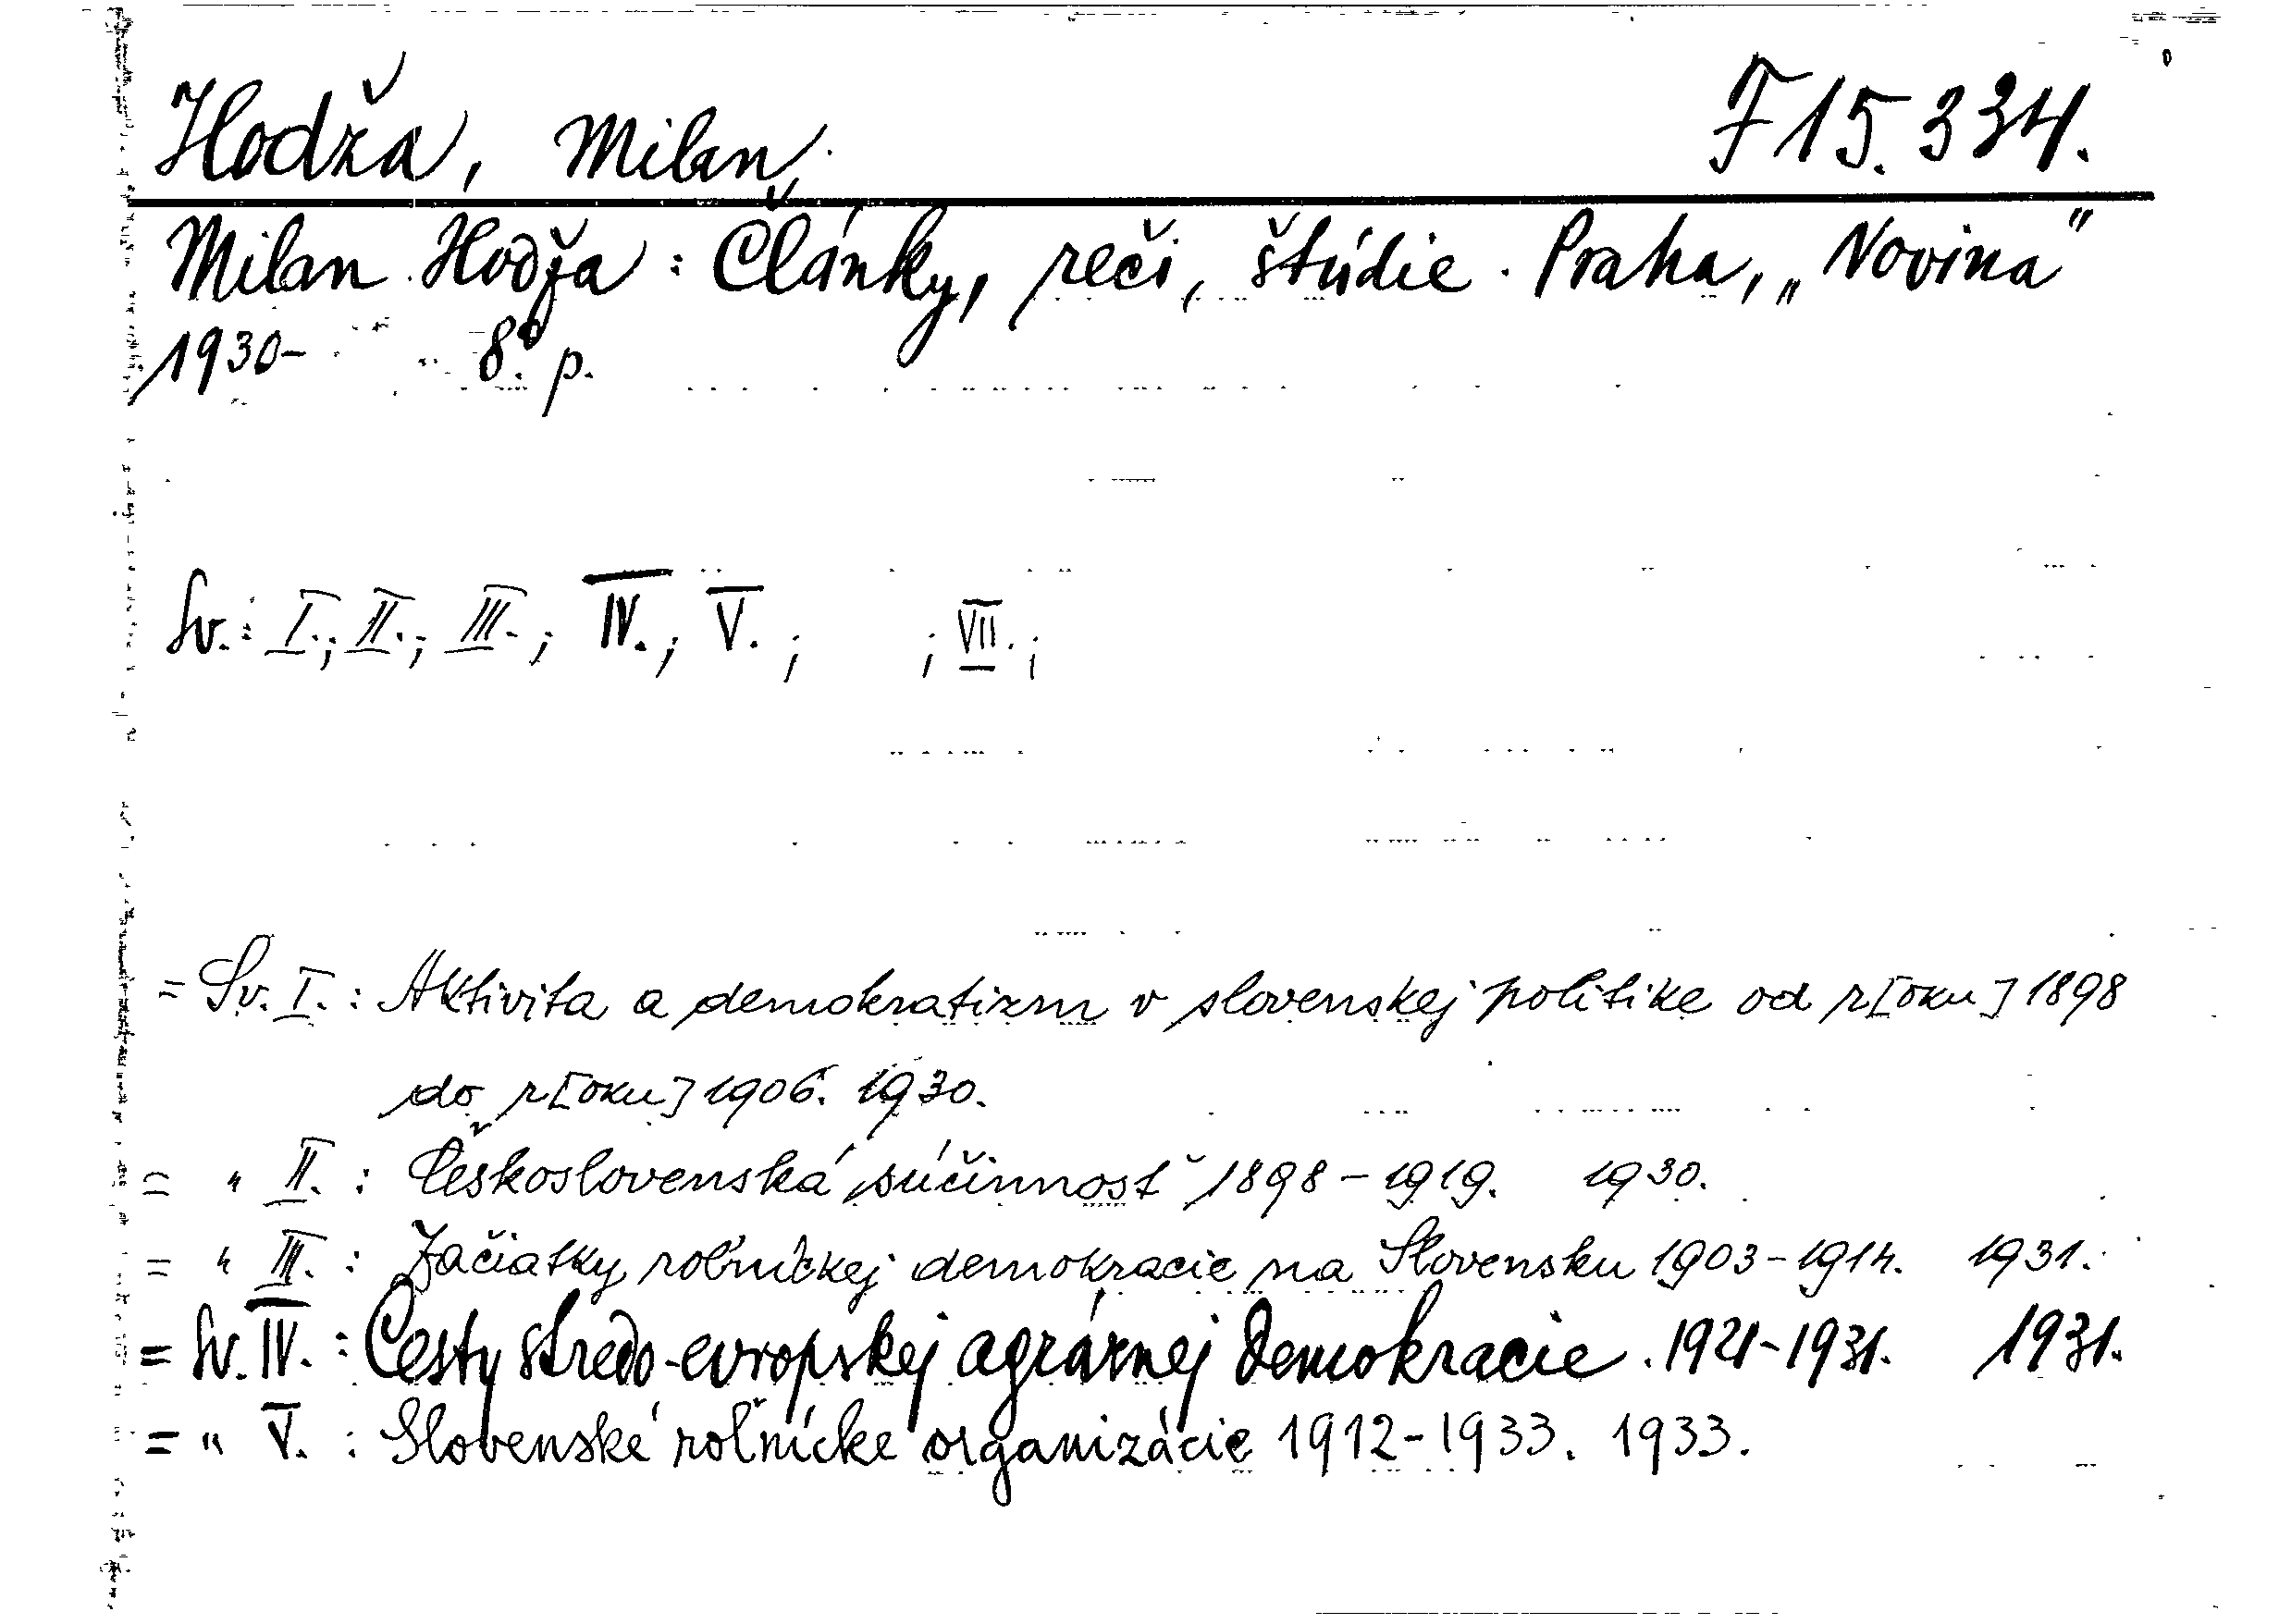 Hodža, Milan. F 15.334.
Milan Hodža : Články, reči, štúdie. Praha, „Novina"
1930- 8º. p.
Sv.: I.; II.; III.; IV.; V.; ; VII.;
= Sv. I. : Aktivita a demokratizm v slovenskej politike od r[oku] 1898
do r[oku] 1906. 1930.
= " II. : Československá súčinnosť 1898-1919. 1930.
= " III. : Začiatky roľníckej demokracie na Slovensku 1903-1914. 1931.
= Sv. IV. : Cesty stredo-evropskej agrárnej demokracie. 1921-1931. 1931.
= " V. : Slovenské roľnícke organizácie 1912-1933. 1933.